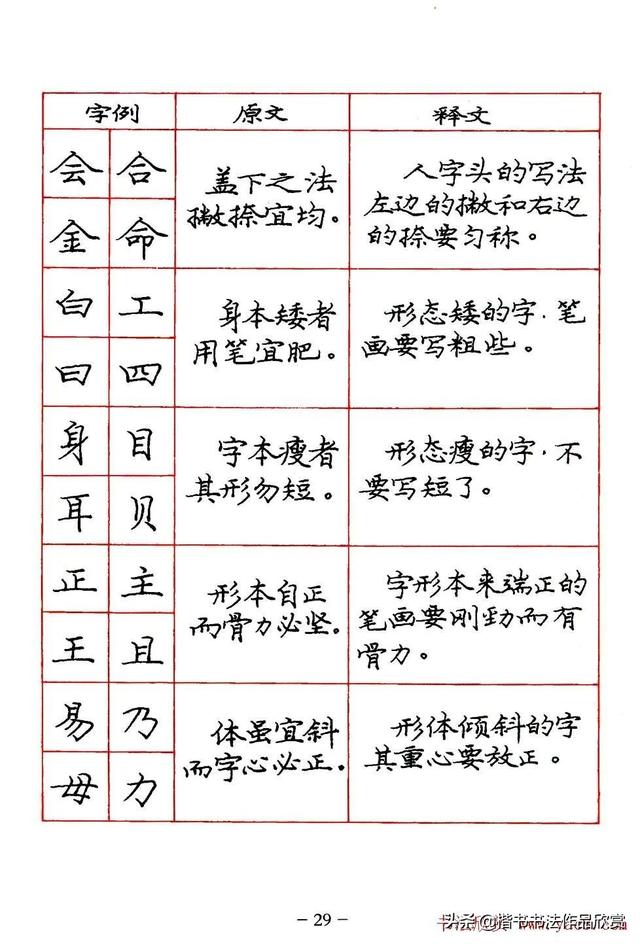 字例 原文 释文
会 合
金 命
盖下之法
撇捺宜均。
人字头的写法
左边的撇和右边
的捺要匀称。
白 工
曰 四
身本矮者
用笔宜肥。
形态矮的字，笔
画要写粗些。
身 目
耳 贝
字本瘦者
其形勿短。
形态瘦的字，不
要写短了。
正 主
王 且
形本自正
而骨力必坚。
字形本来端正的
笔画要刚劲而有
骨力。
易 乃
毋 力
体虽宜斜
而字心必正。
形体倾斜的字
其重心要放正。
- 29 -
头条@楷书书法作品欣赏